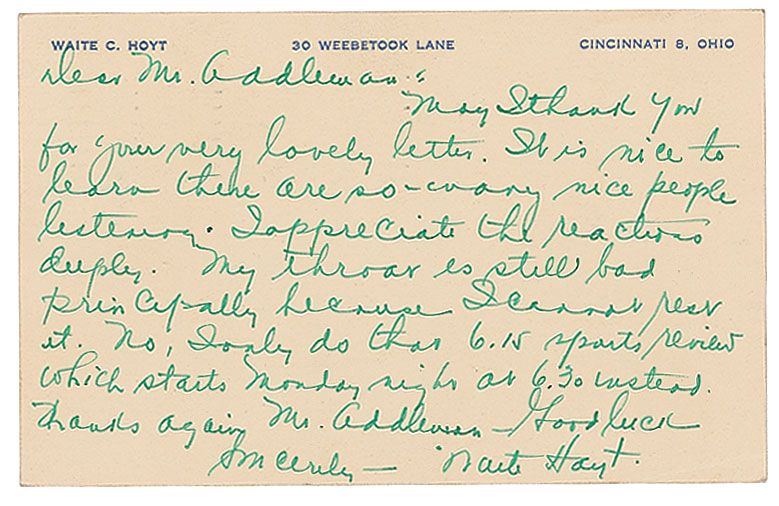 WAITE C. HOYT 30 WEEBETOOK LANE CINCINNATI 8, OHIO
Dear Mr. Addleman:
May I thank you
for your very lovely letter. It is nice to
learn there are so-many nice people
listening. I appreciate the reactions
deeply. My throat is still bad
principally because I cannot rest
it. No, I only do that 6.15 sports review
which starts Monday night at 6.30 instead.
Thanks again Mr. Addleman - Good luck
Sincerely - Waite Hoyt.